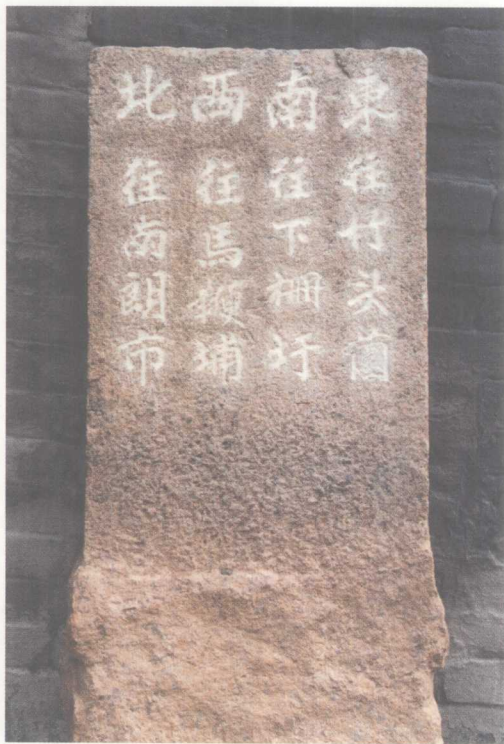 東往竹头
南往下柵圩
西往馬埔
北往南朗市